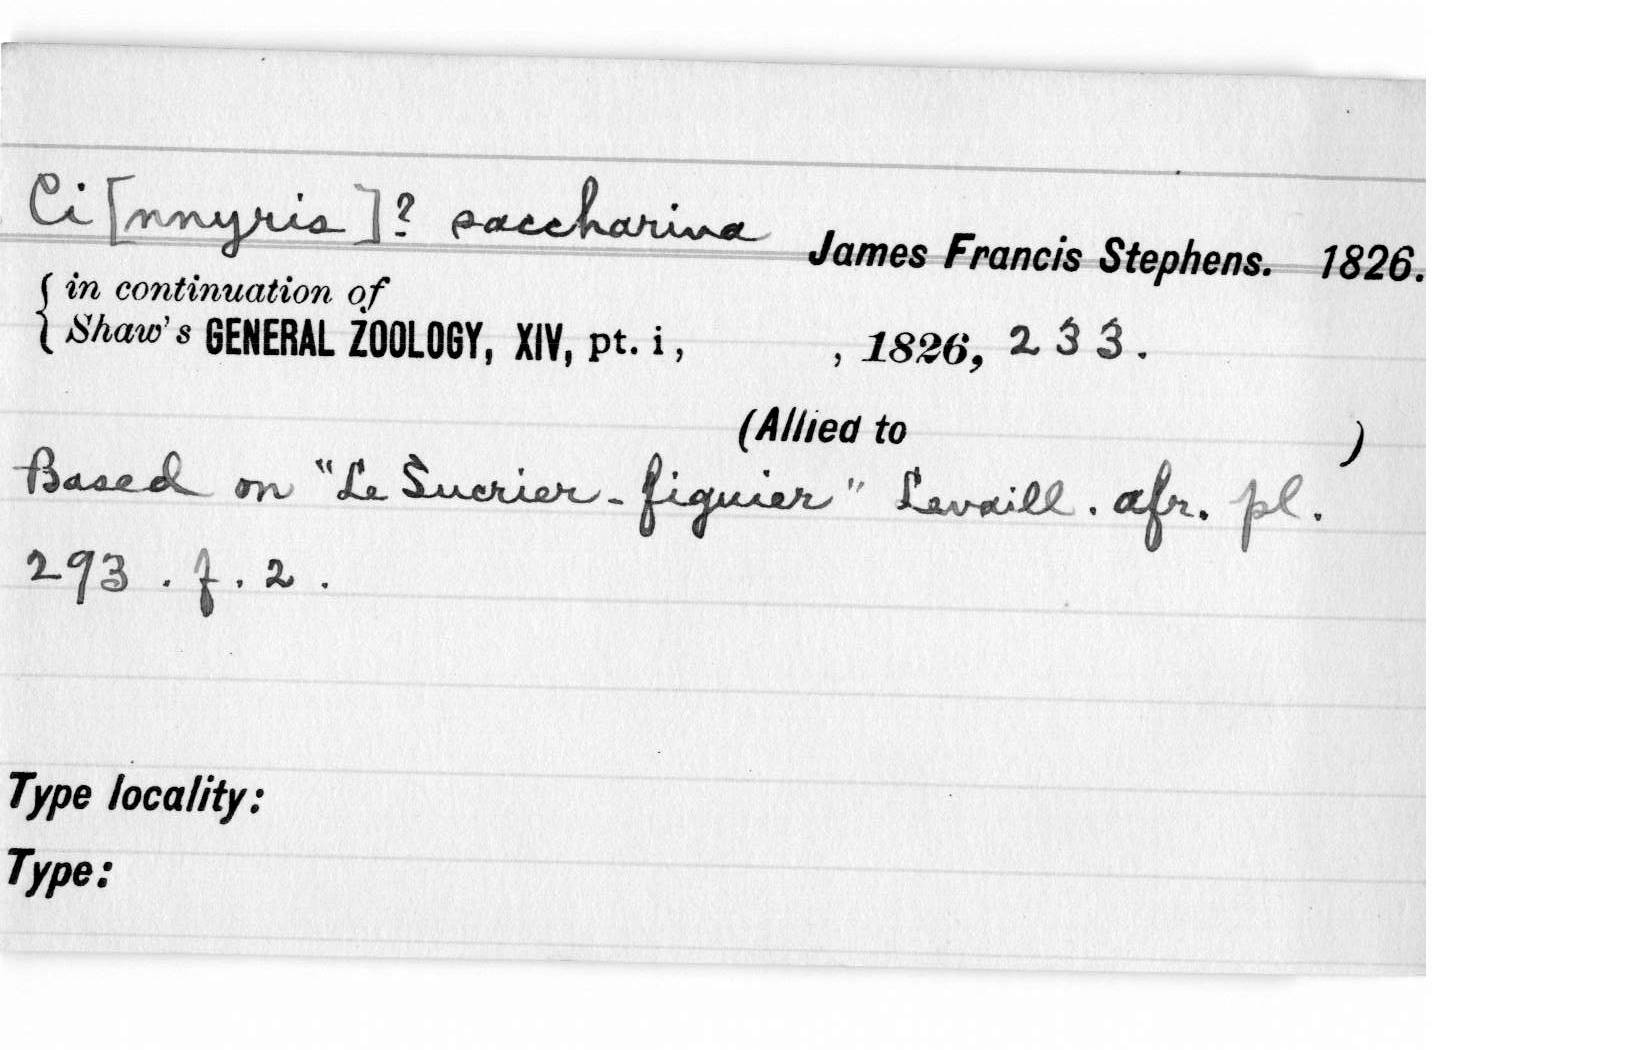 Ci[nnyris]? saccharina James Francis Stephens. 1826.
in continuation of
Shaw's GENERAL ZOOLOGY, XIV, pt. i, , 1826, 233.
(Allied to )
Based on "Le Sucrier-figuier" Levaill. afr. pl.
293. f. 2.
Type locality:
Type: